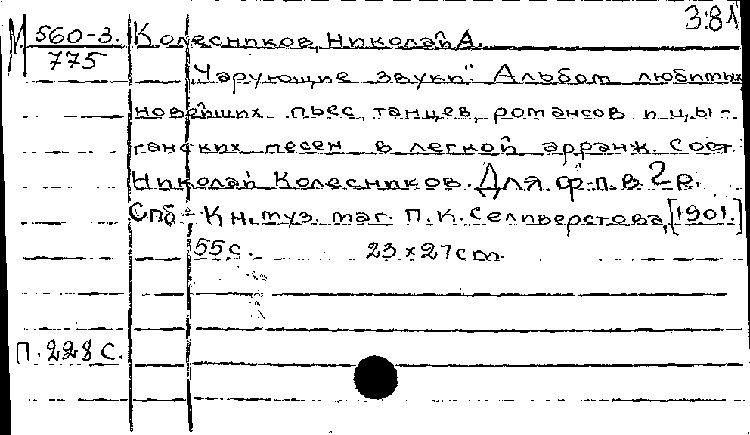 381
М 560-3. Колесников, Николай А.
775
"Чарующие звуки". Альбом любимых
новейших пьес, танцев, романсов и цы-
ганских песен в легкой арранж. Сост.
Николай Колесников. Для ф.п. в 2 р.
Спб - Кн. муз. маг. П. К. Селиверстова, [1901.]
55 с. 23 × 27 cm.
П. 228 с.